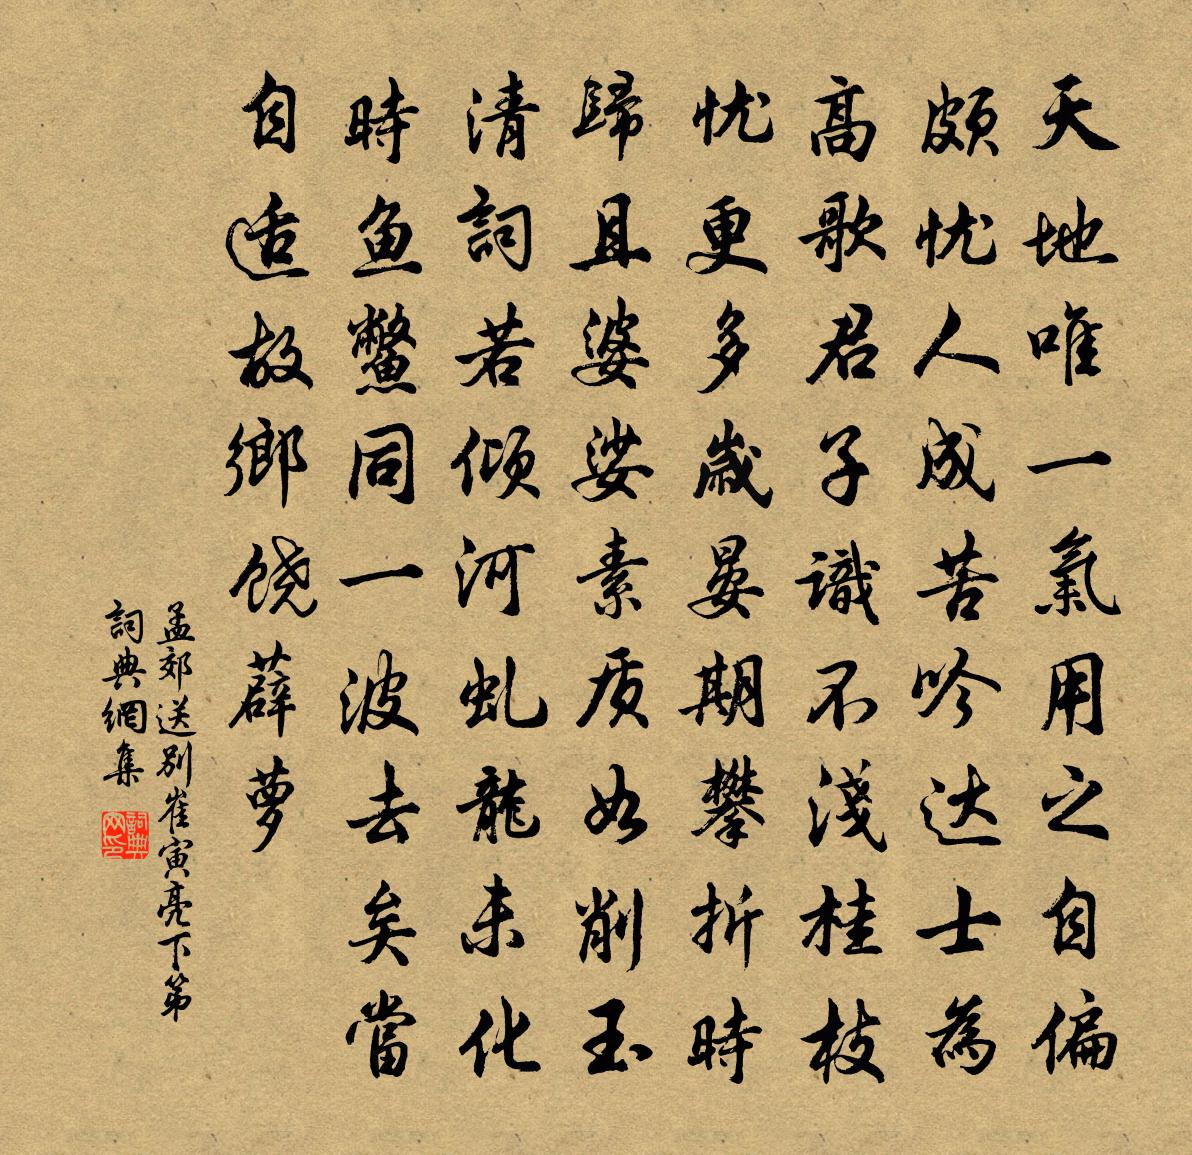 天地唯一氣用之自偏
頗忧人成苦吟达士為
高歌君子識不淺桂枝
忧更多歲晏期攀折時
歸且婆娑素质如削玉
清詞若倾河虬龍未化
時鱼鱉同一波去矣當
自适故鄉饶薜萝
孟郊送别崔寅亮下第
詞典網集
詞典网印